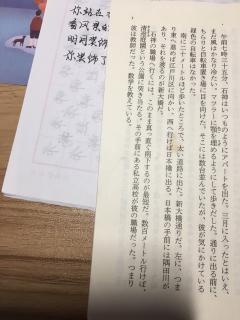 你站在
看风景的
明月装饰
你装饰了
1
午前七時三十五分、石神はいつものようにアパートを出た。三月に入ったとはいえ、
まだ風はかなり冷たい。マフラーに顎を埋めるようにして歩きだした。通りに出る前に、
ちらりと自転車置き場に目を向けた。そこには数台並んでいたが、彼が気にかけている
緑色の自転車はなかった。
南に二十メートルほど歩いたところで、太い道路に出た。新大橋通りだ。左に、つま
り東へ進めば江戸川区に向かい、西へ行けば日本橋に出る。日本橋の手前には隅田川が
あり、それを渡るのが新大橋だ。
石神の職場へ行くには、このまま真っ直ぐ南下するのが最短だ。数百メートル行けば、
清澄庭園という公園に突き当たる。その手前にある私立高校が彼の職場だった。つまり
彼は教師だった。数学を教えている。